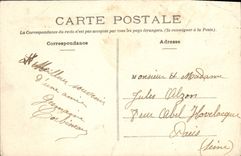 CARTE POSTALE
(La correspondance au recto n'est pas acceptée par tous les pays étrangers. (Se renseigner à la Poste).
Correspondance
Adresse
Meilleur souvenir
d'une amie
Germaine
Monsieur et Madame
Jules Alzon
Rue Abel Hovelacque
Paris
(Seine)